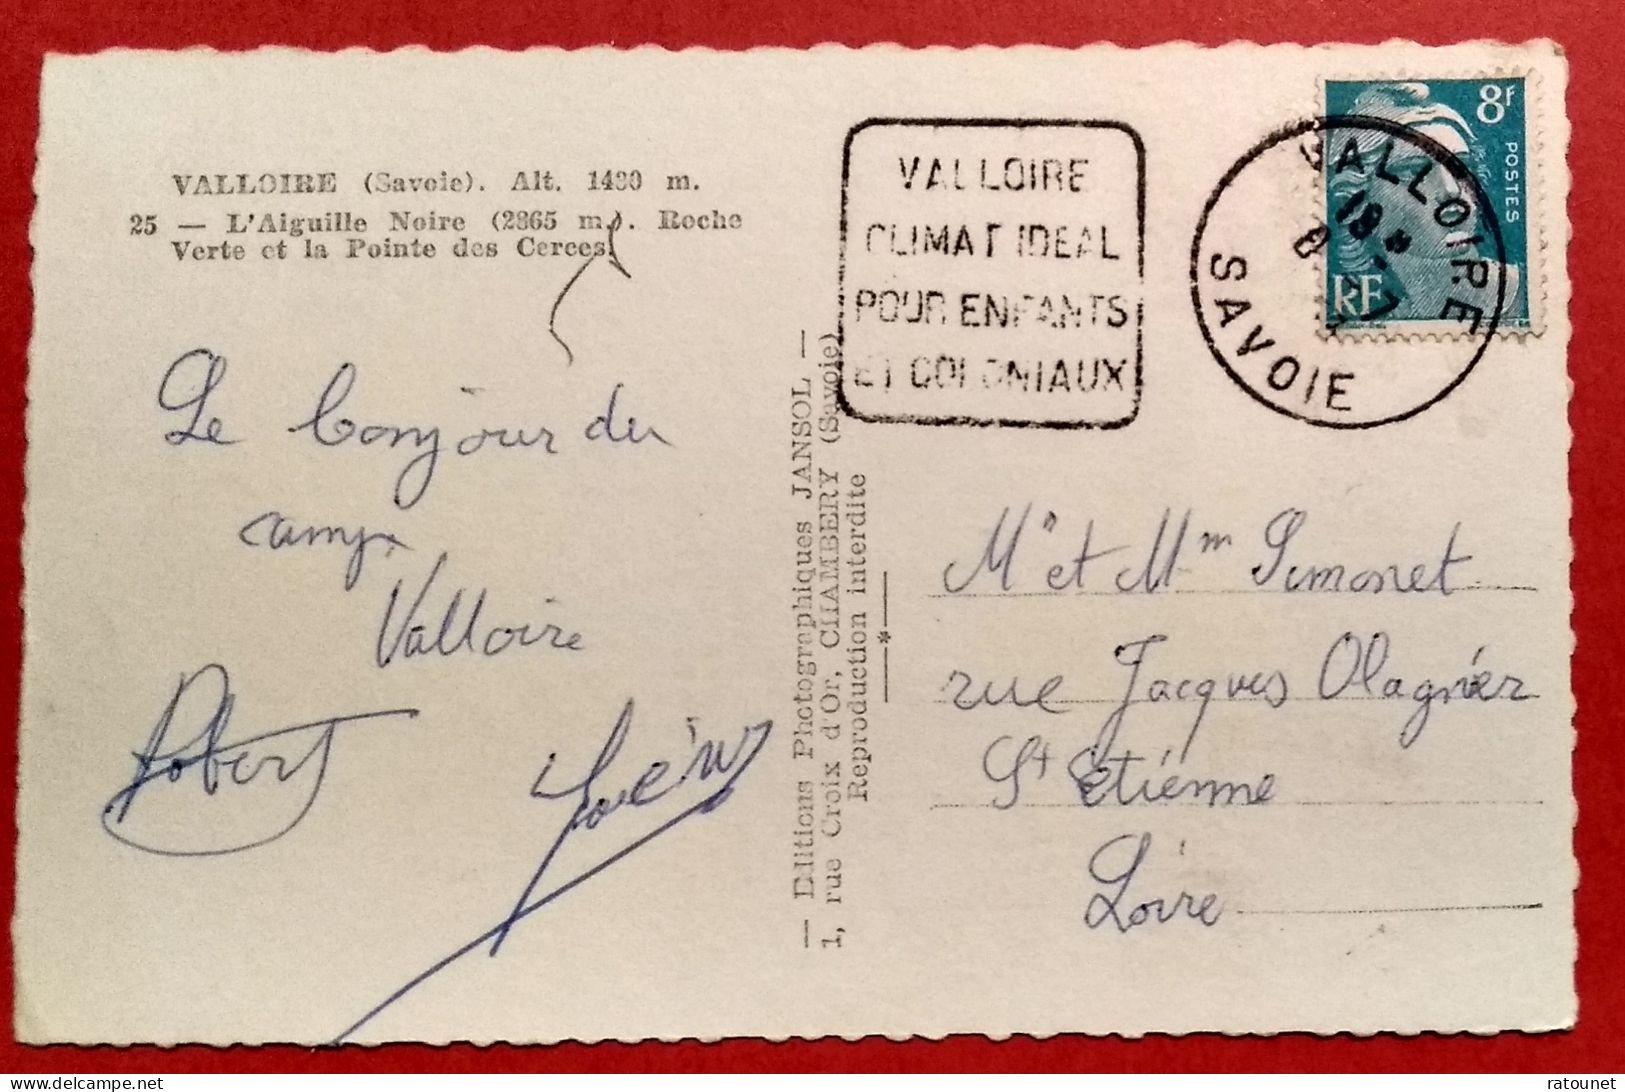 VALLOIRE (Savoie). Alt. 1430 m.
25 — L'Aiguille Noire (2865 m.). Roche
Verte et la Pointe des Cerces.
Le bonjour du
camp.
Valloire
Robert
— Editions Photographiques JANSOL —
1, rue Croix d'Or, CHAMBERY (Savoie)
Reproduction interdite
—*—
VALLOIRE
CLIMAT IDEAL
POUR ENFANTS
ET COLONIAUX
VALLOIRE
18
SAVOIE
8F
POSTES
RF
Mr et Mm Simonet
rue Jacques Olagnier
St Etienne
Loire
ratounet